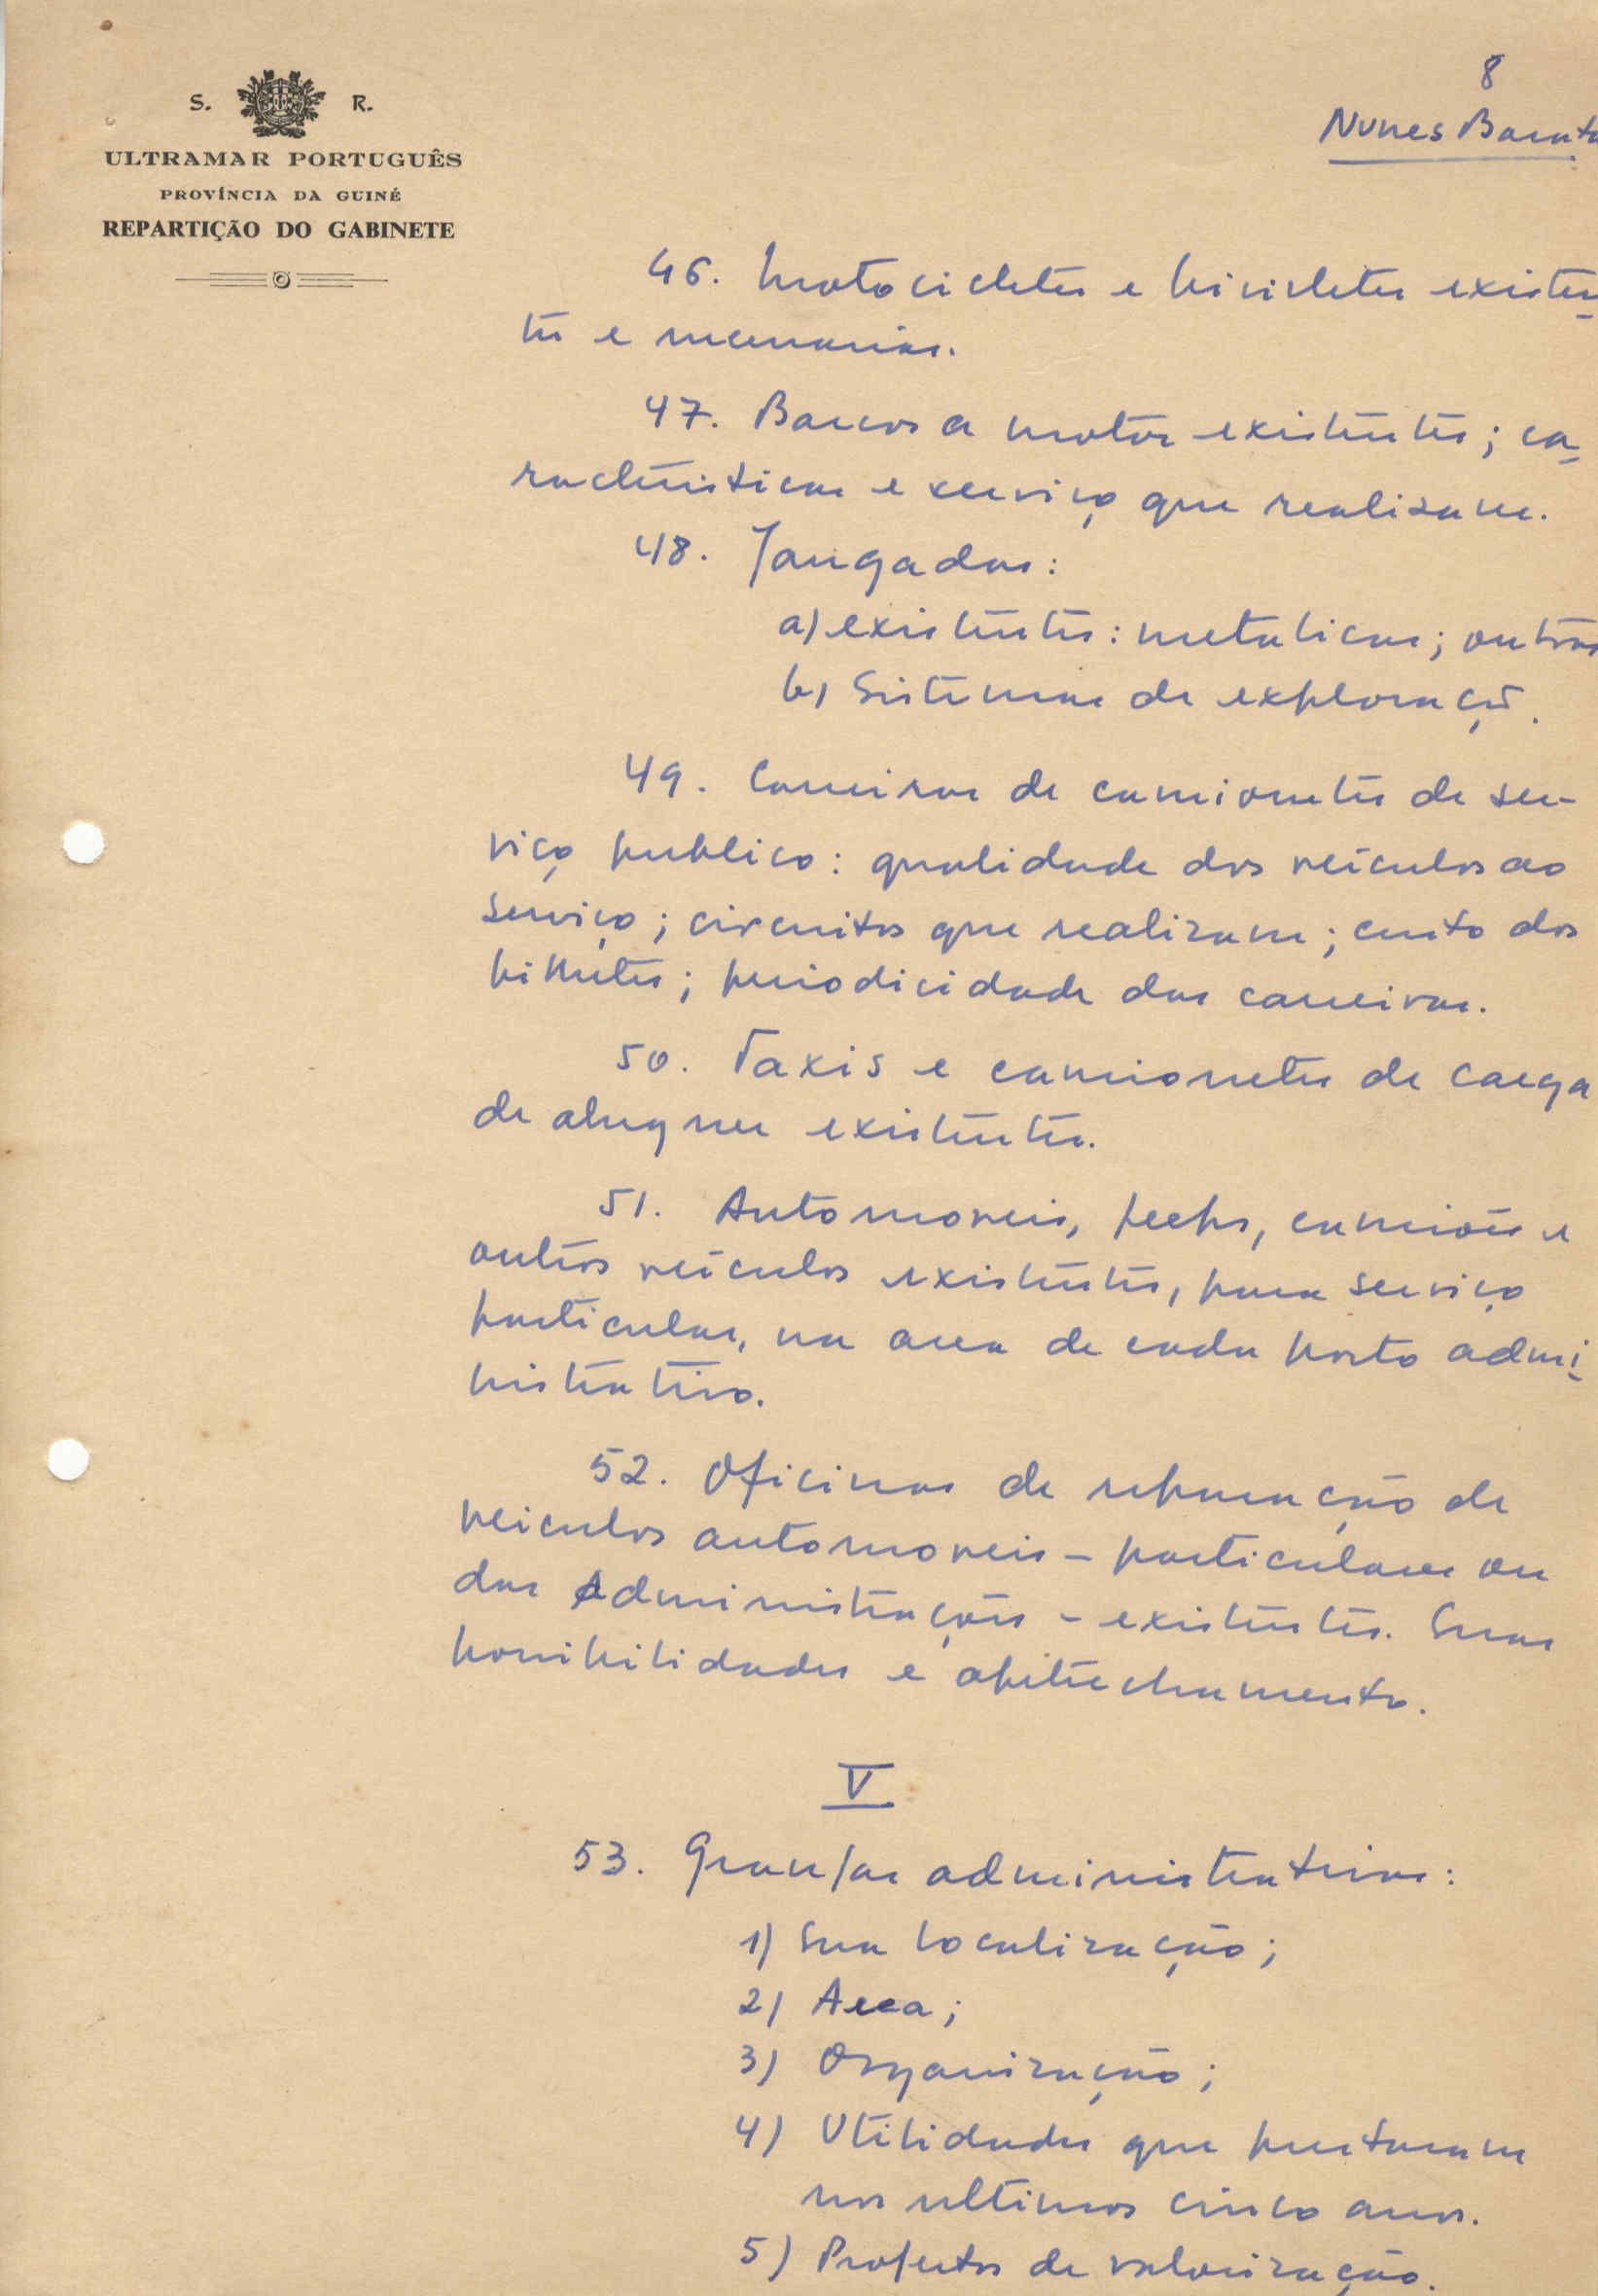 S. R.
ULTRAMAR PORTUGUÊS
PROVÍNCIA DA GUINÉ
REPARTIÇÃO DO GABINETE
8
Nunes Barata
46. Motocicletes e bicicletes existen_
tes e necessarias.
47. Barcos a motor existentes; ca_
racteristicas e serviço que realizam.
48. Jangadas:
a) existentes: metalicas; outras
b) Sistemas de exploração.
49. Carreiras de camionetes de ser-
viço publico: qualidade dos veículos ao
serviço; circuitos que realizam; custo dos
bilhetes; periodicidade das carreiras.
50. Taxis e camionetes de carga
de aluguer existentes.
51. Automoveis, jeeps, camiões e
outros veículos existentes, para serviço
particular, na area de cada posto admi_
nistrativo.
52. Oficinas de reparação de
veiculos automoveis - particulares ou
das Administrações - existentes. Suas
possibilidades e apetrechamento.
V
53. Granjas administrativas:
1) Sua localização;
2) Area;
3) Organização;
4) Utilidades que prestaram
nos ultimos cinco anos.
5) Projectos de valorização.